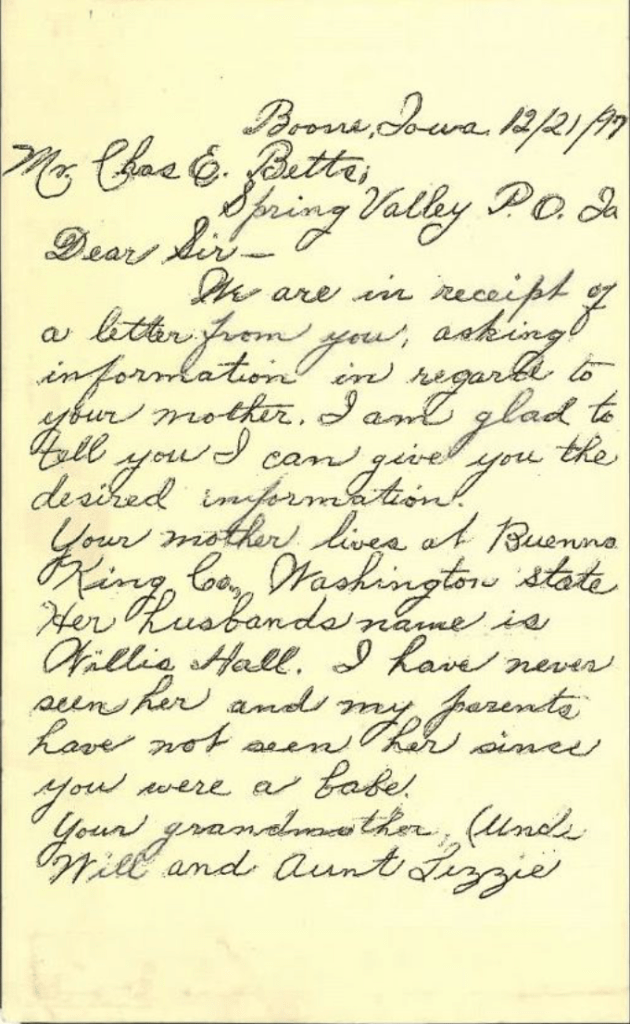 Boone, Iowa, 12/21/97
Mr. Chas E. Betts,
Spring Valley P. O. Ia
Dear Sir—
We are in receipt of
a letter from you, asking
information in regard to
your mother. I am glad to
tell you I can give you the
desired information.
Your mother lives at Buenna
King Co., Washington state
Her husbands name is
Willis Hall. I have never
seen her and my parents
have not seen her since
you were a babe.
Your grandmother, (Uncle
Will and Aunt Lizzie